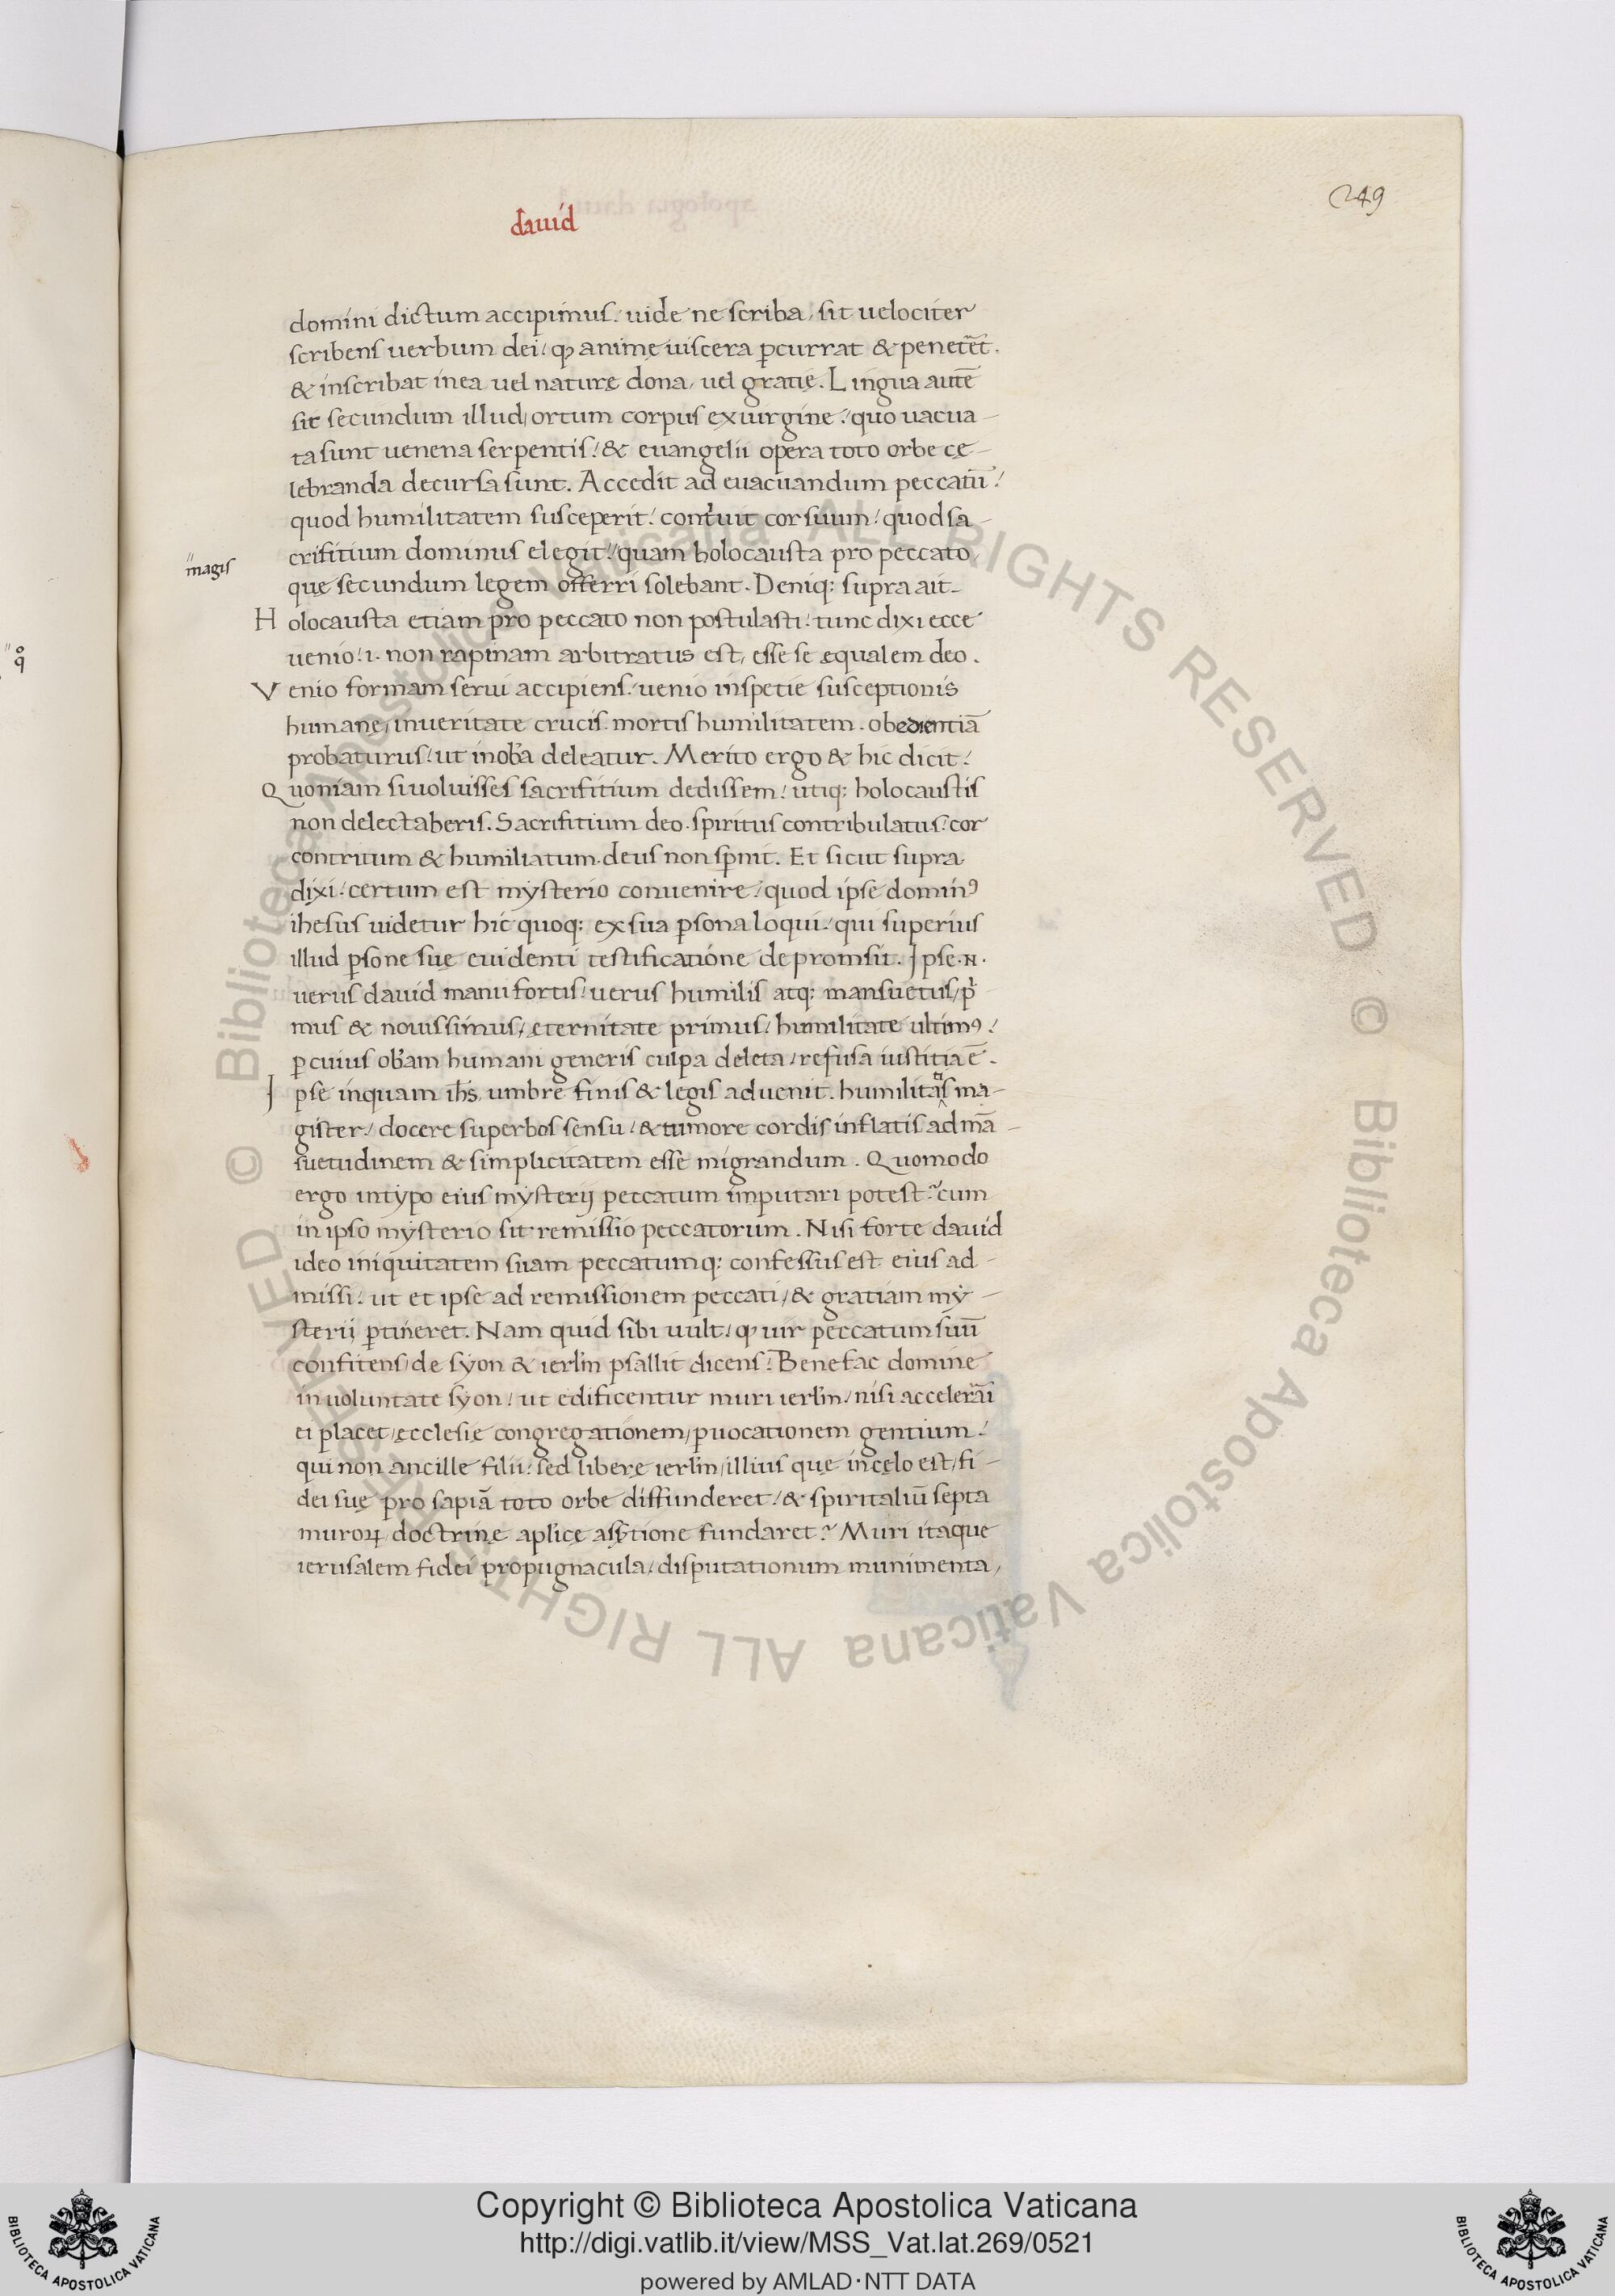 249
dauid
domini dictum accipimus / uide ne scriba, sit uelociter
scribens uerbum dei / ꝙ animę uiscera ꝑcurrat & penetret.
& inscribat in ea uel naturę dona, uel gratię. Lingua autē
sit secundum illud, ortum corpus ex uirgine / quo uacua-
ta sunt uenena serpentis / & euangelii opera toto orbe cę-
lebranda decursa sunt. Accedit ad euacuandum peccatū /
quod humilitatem susceperit / contriuit cor suum / quod sa-
crifitium dominus elegit / quam holocausta pro peccato,
magis
quę secundum legem offerri solebant. Deniq; supra ait.
Holocausta etiam pro peccato non postulasti / tunc dixi ecce
uenio / .i. non rapinam arbitratus est, esse se ęqualem deo.
Venio formam serui accipiens / uenio in spetie susceptionis
humanę, in ueritate crucis. mortis humilitatem. obedientiā
probaturus / ut inoba deleatur. Merito ergo & hic dicit /
Quoniam si uoluisses sacrifitium dedissem / utiq; holocaustis
non delectaberis. Sacrifitium deo. spiritus contribulatus / cor
contritum & humiliatum. deus non spernit. Et sicut supra
dixi / certum est mysterio conuenire / quod ipse dominꝰ
ihesus uidetur hic quoq; ex sua ꝑsona loqui / qui superius
illud ꝑsone suę euidenti testificatione depromsit. Ipse .n.
uerus dauid manu fortis / uerus humilis atq; mansuetus, pi-
mus & nouissimus, ęternitate primus, humilitate ultimꝰ /
ꝑ cuius obam humani generis culpa deleta, refusa iustitia ē.
Ipse inquam ihs, umbrę finis & legis aduenit. humilitatis ma-
gister / docere superbos sensu / & tumore cordis inflatis ad mā-
suetudinem & simplicitatem esse migrandum. Quomodo
ergo in typo eius mysterij peccatum imputari potest? cum
in ipso mysterio sit remissio peccatorum. Nisi forte dauid
ideo iniquitatem suam peccatumq; confessus est. eius ad-
missi / ut et ipse ad remissionem peccati, & gratiam my-
sterij ꝑtineret. Nam quid sibi uult / ꝙ uir peccatum suū
confitens, de syon & ierlm psallit dicens / Benefac domine
in uoluntate syon / ut edificentur muri ierlm, nisi accelerari
ei placet, ecclesię congregationem, ꝓuocationem gentium /
qui non ancillę filii / sed liberę ierlm, illius quę in cęlo est, fi-
dei suę prosapiā toto orbe diffunderet / & spiritaliū septa
muroꝝ doctrinę aplicę assertione fundaret? Muri itaque
ierusalem fidei propugnacula, disputationum munimenta,
Copyright © Biblioteca Apostolica Vaticana
http://digi.vatlib.it/view/MSS_Vat.lat.269/0521
powered by AMLAD·NTT DATA
BIBLIOTECA APOSTOLICA VATICANA
BIBLIOTECA APOSTOLICA VATICANA
© Biblioteca Apostolica Vaticana ALL RIGHTS RESERVED © Biblioteca Apostolica Vaticana ALL RIGHTS RESERVED